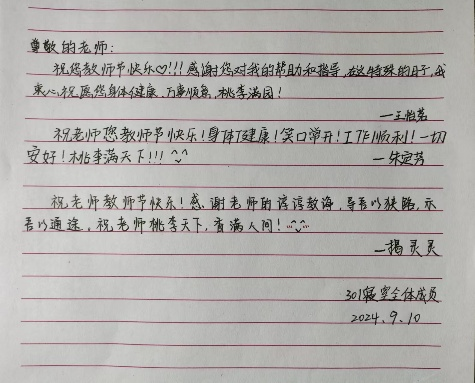 尊敬的老师:
祝您教师节快乐♡!!!感谢您对我的帮助和指导,在这特殊的日子,我
衷心祝愿您身体健康,万事顺意,桃李满园!
—王怡茗
祝老师您教师节快乐!身体健康!笑口常开!工作顺利!一切
安好!桃李满天下!!! ^_^
—朱宣芳
祝老师教师节快乐!感谢老师的谆谆教诲,导吾以狭路,示
吾以通途,祝老师桃李天下,香满人间!^_^
—揭灵灵
301寝室全体成员
2024.9.10